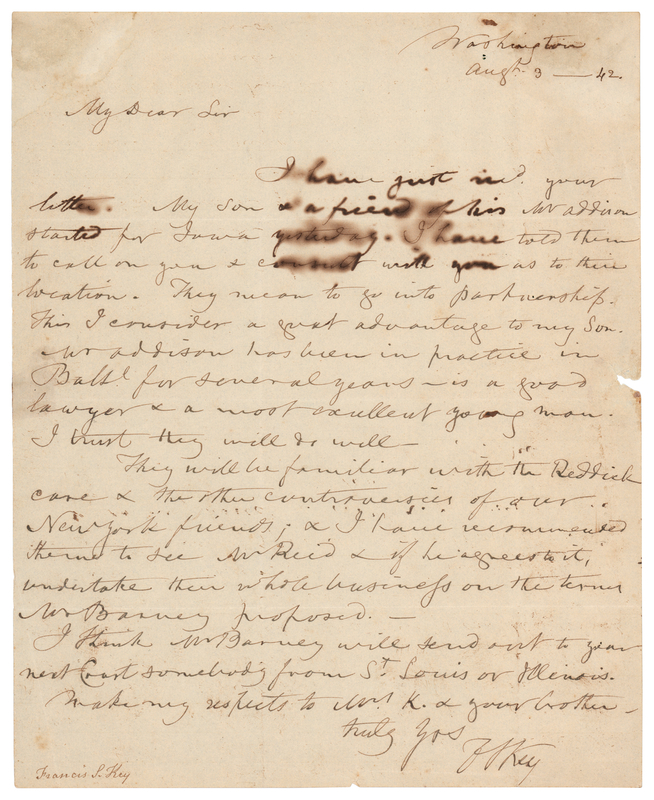 Washington
Augt. 3 — 42.
My Dear Sir
I have just recd. your
letter. My Son & a friend of his Mr Addison
started for Iowa yesterday. I have told them
to call on you & consult with you as to their
location. They mean to go into partnership.
This I consider a great advantage to my Son.
Mr Addison has been in practice in
Balto. for several years – is a good
lawyer & a most excellent young man.
I trust they will do well —
They will be familiar with the Reddick
case & the other controversies of our
New York friends; & I have recommended
them to see Mr Reid & if he agrees to it,
undertake their whole business on the terms
Mr Barney proposed. —
I think Mr Barney will send out to your
next Court somebody from St. Louis or Illinois.
Make my respects to Mrs. K. & your brother –
truly Yrs
F S Key
Francis S. Key